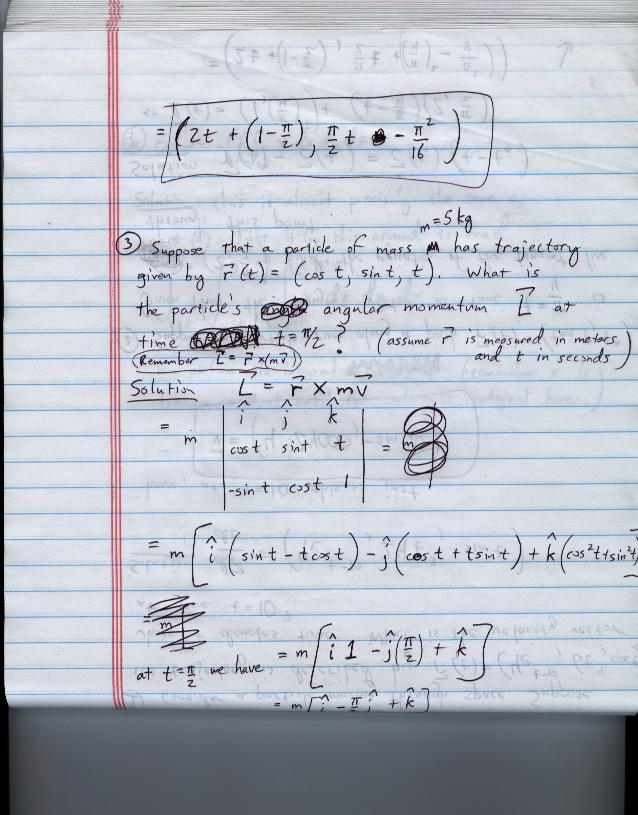 = (2t + (1-π/2), π/2 t - π²/16)
m = 5 kg
③ Suppose that a particle of mass m has trajectory
given by r⃗(t) = (cos t, sin t, t). What is
the particle's angular momentum L⃗ at
time t = π/2 ? (assume r⃗ is measured in meters
and t in seconds)
(Remember L⃗ = r⃗ x (mv⃗))
Solution L⃗ = r⃗ x mv⃗
= m | î ĵ k̂ |
| cos t sin t t | = m
| -sin t cos t 1 |
= m [ î (sin t - t cos t) - ĵ (cos t + t sin t) + k̂ (cos² t + sin² t)
= m
at t = π/2 we have = m [ î 1 - ĵ (π/2) + k̂ ]
= m [ î - π/2 ĵ + k̂ ]